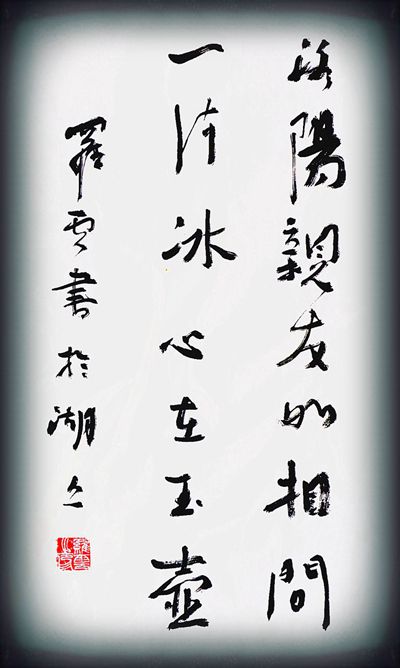 洛陽親友如相問
一片冰心在玉壺
羅雲書於湖上